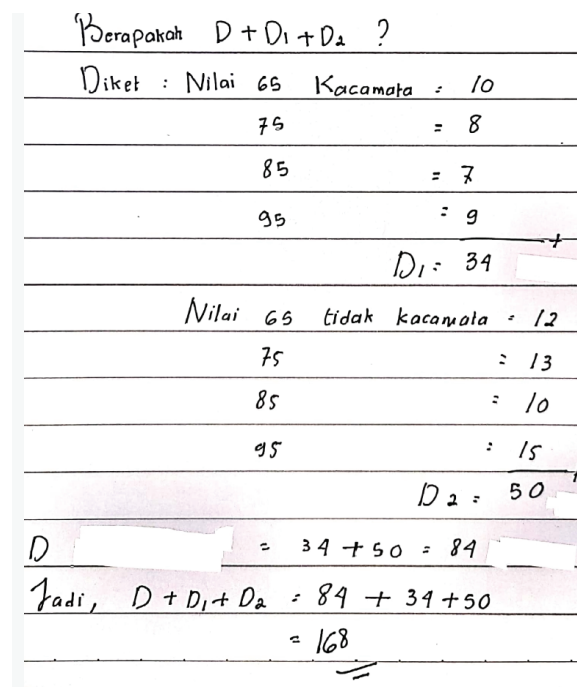 Berapakah D + D1 + D2 ?
Diket : Nilai 65 Kacamata = 10
75 = 8
85 = 7
95 = 9
+
D1 = 34
Nilai 65 tidak kacamata = 12
75 = 13
85 = 10
95 = 15
D2 = 50
D = 34 + 50 = 84
Jadi, D + D1 + D2 = 84 + 34 + 50
= 168